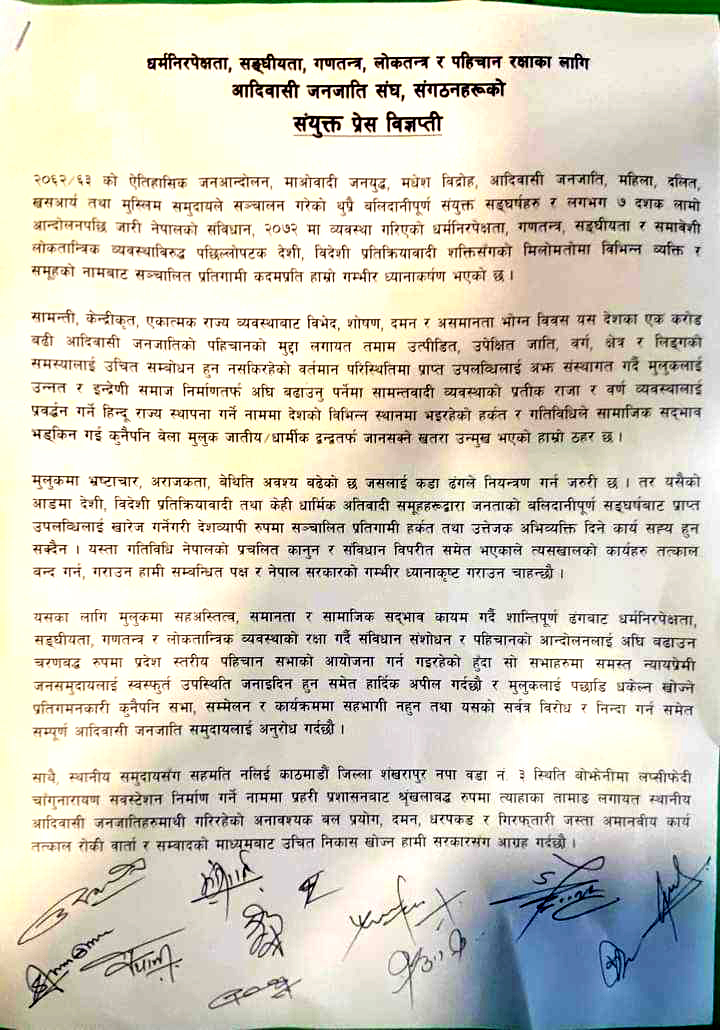 धर्मनिरपेक्षता, सङ्घीयता, गणतन्त्र, लोकतन्त्र र पहिचान रक्षाका लागि
आदिवासी जनजाति संघ, संगठनहरूको
संयुक्त प्रेस विज्ञप्ती
२०६२/६३ को ऐतिहासिक जनआन्दोलन, माओवादी जनयुद्ध, मधेश विद्रोह, आदिवासी जनजाति, महिला, दलित,
खसआर्य तथा मुस्लिम समुदायले सञ्चालन गरेको थुप्रै बलिदानीपूर्ण संयुक्त सङ्घर्षहरु र लगभग ७ दशक लामो
आन्दोलनपछि जारी नेपालको संविधान, २०७२ मा व्यवस्था गरिएको धर्मनिरपेक्षता, गणतन्त्र, सङ्घीयता र समावेशी
लोकतान्त्रिक व्यवस्थाविरुद्ध पछिल्लोपटक देशी, विदेशी प्रतिक्रियावादी शक्तिसँगको मिलोमतोमा विभिन्न व्यक्ति र
समूहको नामबाट सञ्चालित प्रतिगामी कदमप्रति हाम्रो गम्भीर ध्यानाकर्षण भएको छ ।
सामन्ती, केन्द्रीकृत, एकात्मक राज्य व्यवस्थाबाट विभेद, शोषण, दमन र असमानता भोग्न विवस यस देशका एक करोड
बढी आदिवासी जनजातिको पहिचानको मुद्दा लगायत तमाम उत्पीडित, उपेक्षित जाति, वर्ग, क्षेत्र र लिङ्गको
समस्यालाई उचित सम्बोधन हुन नसकिरहेको वर्तमान परिस्थितिमा प्राप्त उपलब्धिलाई अझ संस्थागत गर्दै मुलुकलाई
उन्नत र इन्द्रेणी समाज निर्माणतर्फ अघि बढाउनु पर्नेमा सामन्तवादी व्यवस्थाको प्रतीक राजा र वर्ण व्यवस्थालाई
प्रवर्द्धन गर्ने हिन्दू राज्य स्थापना गर्ने नाममा देशको विभिन्न स्थानमा भइरहेको हर्कत र गतिविधिले सामाजिक सद्भाव
भड्किन गई कुनैपनि बेला मुलुक जातीय/धार्मीक द्वन्द्वतर्फ जानसक्ने खतरा उन्मुख भएको हाम्रो ठहर छ ।
मुलुकमा भ्रष्टाचार, अराजकता, बेथिति अवश्य बढेको छ जसलाई कडा ढंगले नियन्त्रण गर्न जरुरी छ । तर यसैको
आडमा देशी, विदेशी प्रतिक्रियावादी तथा केही धार्मिक अतिवादी समूहहरूद्वारा जनताको बलिदानीपूर्ण सङ्घर्षबाट प्राप्त
उपलब्धिलाई खारेज गर्नेगरी देशव्यापी रुपमा सञ्चालित प्रतिगामी हर्कत तथा उत्तेजक अभिव्यक्ति दिने कार्य सह्य हुन
सक्दैन । यस्ता गतिविधि नेपालको प्रचलित कानुन र संविधान विपरीत समेत भएकाले त्यसखालको कार्यहरु तत्काल
बन्द गर्न, गराउन हामी सम्बन्धित पक्ष र नेपाल सरकारको गम्भीर ध्यानाकृष्ट गराउन चाहन्छौ ।
यसका लागि मुलुकमा सहअस्तित्व, समानता र सामाजिक सद्भाव कायम गर्दै शान्तिपूर्ण ढंगबाट धर्मनिरपेक्षता,
सङ्घीयता, गणतन्त्र र लोकतान्त्रिक व्यवस्थाको रक्षा गर्दै संविधान संशोधन र पहिचानको आन्दोलनलाई अघि बढाउन
चरणबद्ध रुपमा प्रदेश स्तरीय पहिचान सभाको आयोजना गर्न गइरहेको हुँदा सो सभाहरुमा समस्त न्यायप्रेमी
जनसमुदायलाई स्वस्फूर्त उपस्थिति जनाइदिन हुन समेत हार्दिक अपील गर्दछौ र मुलुकलाई पछाडि धकेल्न खोज्ने
प्रतिगमनकारी कुनैपनि सभा, सम्मेलन र कार्यक्रममा सहभागी नहुन तथा यसको सर्वत्र विरोध र निन्दा गर्न समेत
सम्पूर्ण आदिवासी जनजाति समुदायलाई अनुरोध गर्दछौ ।
साथै, स्थानीय समुदायसँग सहमति नलिई काठमाडौं जिल्ला शंखरापुर नपा वडा नं. ३ स्थिति बोझेनीमा लप्सीफेदी
चांगुनारायण सवस्टेशन निर्माण गर्ने नाममा प्रहरी प्रशासनबाट श्रृंखलाबद्ध रुपमा त्यहाका तामाङ लगायत स्थानीय
आदिवासी जनजातिहरुमाथी गरिरहेको अनावश्यक बल प्रयोग, दमन, धरपकड र गिरफ्तारी जस्ता अमानवीय कार्य
तत्काल रोकी वार्ता र सम्वादको माध्यमबाट उचित निकास खोज्न हामी सरकारसंग आग्रह गर्दछौ ।